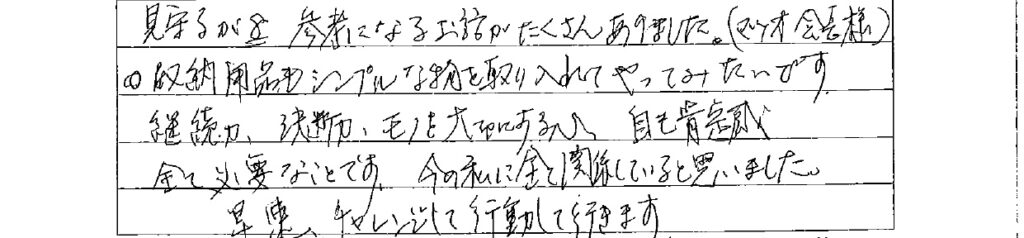 見守るが座 参考になるお話がたくさんありました。(マツオ会長様)
○収納用品もシンプルな物を取り入れてやってみたいです。
継続力、決断力、モノを大切にする心、自己肯定感
全て必要なことです。今の私に全て関係していると思いました。
早速、チャレンジして行動して行きます